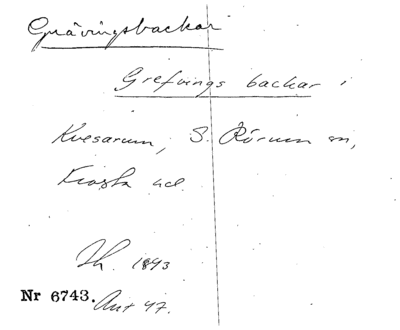 Grävingsbackar
Grefvings backar i
Kvesarum, S. Rörum sn,
Frosta hd.
Th. 1893
Nr 6743. Ant 47.